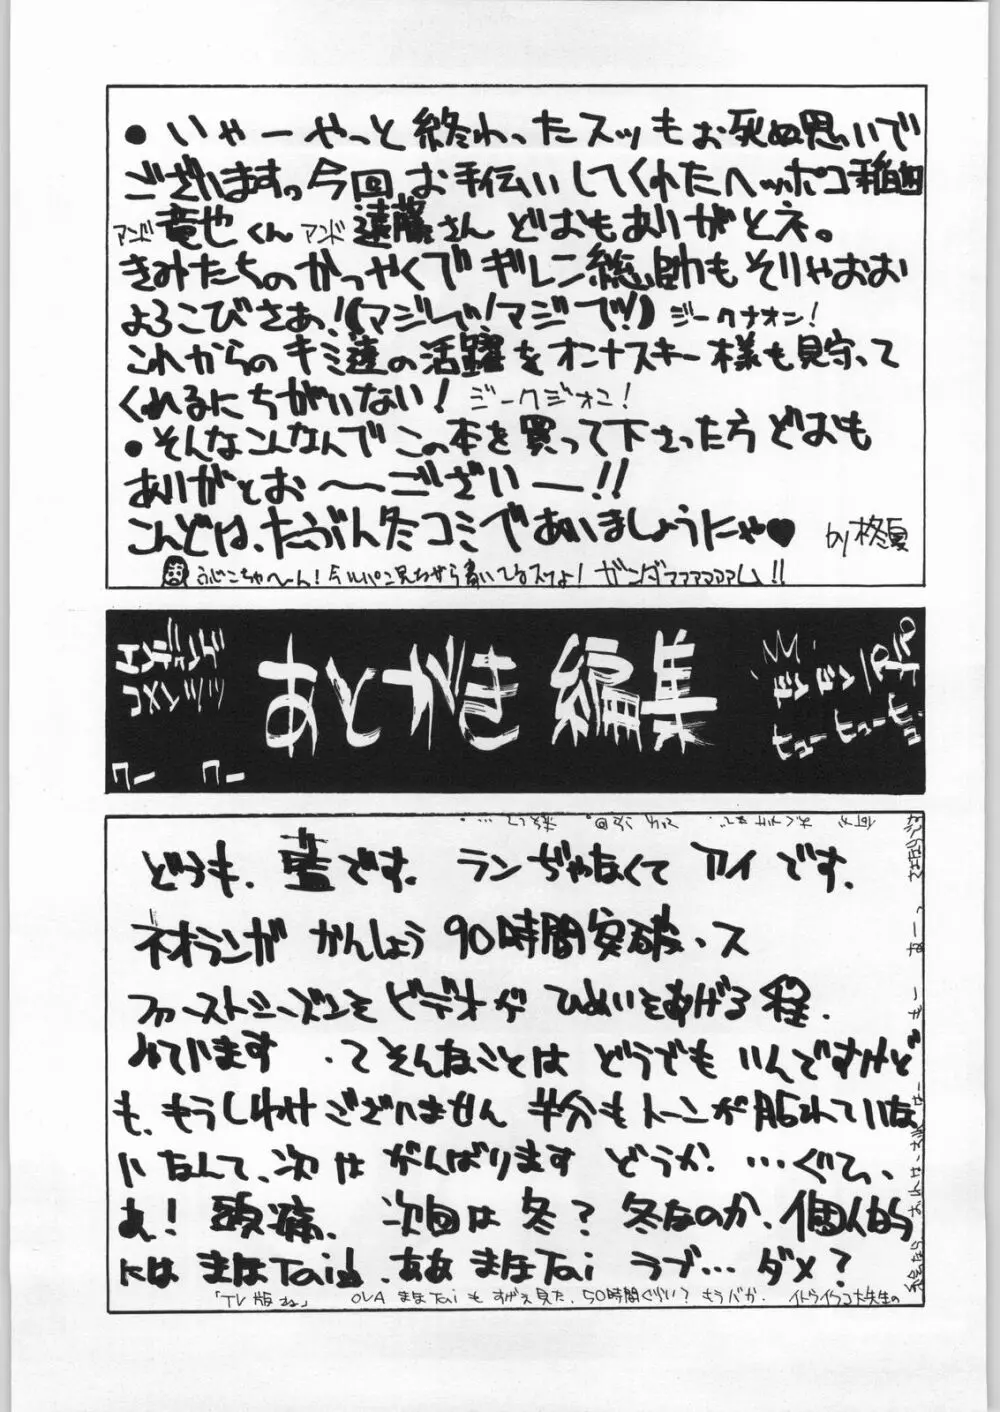 ●いやーやっと終わったスッもお死ぬ思いで
ございますっ今回、お手伝いしてくれたヘッポコ稲田
アンド竜也くんアンド遠藤さんどおもありがとネ。
きみたちのかつやくでギレン総帥もそりゃおお
よろこびさあ!(マジレで!マジで!!) ジークナオン!
これからのキミ達の活躍をオンナスキー様も見守って
くれるにちがいない! ジークジオン!
●そんなこんなんでこの本を買って下さった方どおも
ありがとお〜ございー!!
こんどは、たぶん冬コミであいましょうにゃ♥ by 柊夏
ふじこちゃへ〜ん!今ルパン見ながら書いてるスよ! ガンダァァァァァム!!
エンディング
コメンツツ
ワー ワー
あとがき編集
ドンドン パチパチ
ヒューヒュー
どうも、藍です。ランぢゃなくてアイです、
ネオランガかんしょう90時間突破、ス
ファーストシーズンをビデオがひめいをあげる程、
みています ・てそんなことはどうでもいんですけど
も、もうしわけございません半分もトーンが貼れていな
いなんて、次はがんばりますどうか…ぐてっ、
あ!頭痛、次回は冬?冬なのか、個人的
にはまほTaiを、ああまほTaiラブ…ダメ?
「TV版ね」 OVAまほTaiもすげえ見た、50時間ぐらい?もうバか、